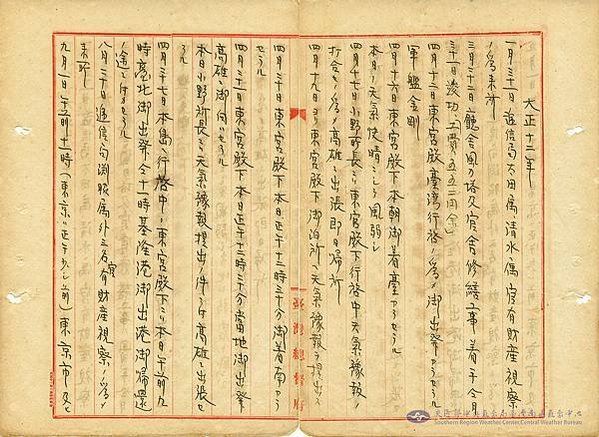 大正十二年
一月三十一日逓信局太田属清水属官有財産視察
ノ為来所
三月二十二日廳舎風力塔及官舎修繕工事着手今月
三十一日竣功、工費(五五二円余)
四月十二日東宮殿下臺湾行啓ノ為メ御出発アラセラル
軍艦金剛
四月十六日東宮殿下本朝御着臺アラセラル
本日ノ天氣快晴ニシテ風弱シ
四月十七日小野所長ニ東宮殿下行啓中天氣豫報ノ
打合セノ為メ高雄ニ出張即日帰所
四月十九日ヨリ東宮殿下御泊所ニ天氣豫報ヲ提出ス
四月二十日東宮殿下本日正午十二時三十分御着南アラ
セラル
四月二十二日東宮殿下本日正午十二時三十分當地御出発
高雄ニ御向ハセラル
本日小野所長ニ天氣豫報提出ノ件ニツキ高雄ニ出張セ
ラル
四月二十七日本島ノ行啓中ノ東宮殿下ニハ本日午前九
時臺北御出発今十一時基隆港御出港御帰還
ノ途ニツカセラル
八月三十日逓信局渊脇属外三名官有財産視察ノ為メ
来所
九月一日午前十一時(東京ハ正午少シ前)東京市及ヒ
臺灣總督府
交通部中央氣象局臺灣南區氣象中心
Southern Region Weather Center,Central Weather Bureau